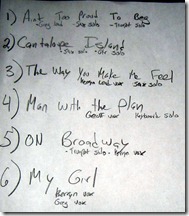 1) Ain't Too Proud To Beg
- Greg lead - Sax solo - Trumpet solo
2) Cantalope Island
- Sax solo - Gtr solo
3) The Way You Make Me Feel
Kerryn lead vox - Sax solo
4) Man with the Plan
Geoff vox Keyboard solo
5) ON Broadway
- Trumpet solo - Kerryn vox
6) My Girl
Kerryn vox
Greg vox